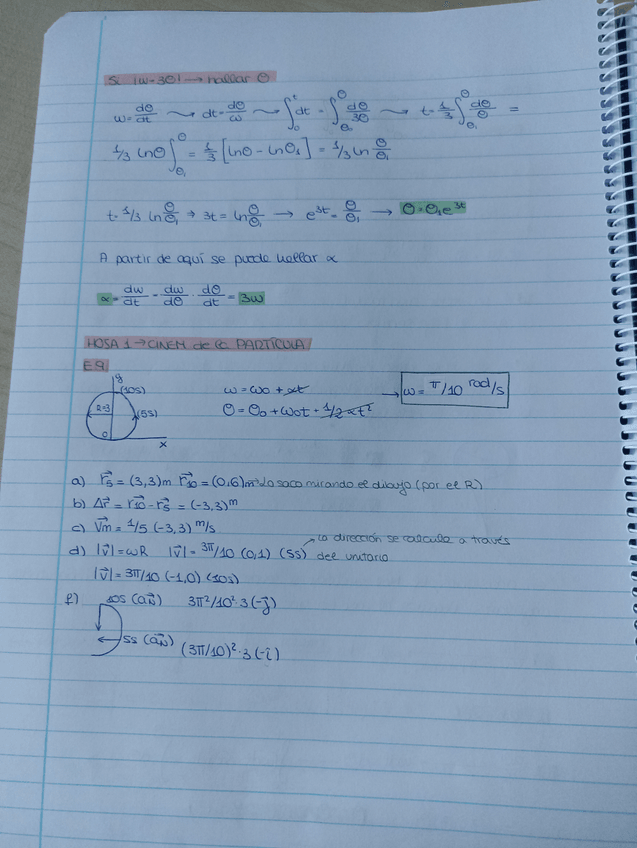 Si |ω=3θ| → hallar θ
ω=dθ/dt ⇝ dt=dθ/ω ⇝ ∫₀ᵗ dt = ∫_θ₁^θ dθ/3θ ⇝ t=1/3 ∫_θ₁^θ dθ/θ =
1/3 lnθ]_θ₁^θ = 1/3 [lnθ - lnθ₁] = 1/3 ln θ/θ₁
t= 1/3 ln θ/θ₁ → 3t = ln θ/θ₁ → e^3t = θ/θ₁ → θ=θ₁e^3t
A partir de aquí se puede hallar α
α = dω/dt = dω/dθ · dθ/dt = 3ω
HOJA 1 → CINEM de la PARTÍCULA
E9
y
(10s)
R=3
(5s)
0
x
ω = ω₀ + αt
θ = θ₀ + ω₀t + 1/2 αt²
→ ω = π/10 rad/s
a) r⃗₅ = (3,3)m r⃗₁₀ = (0,6)m Lo saco mirando el dibujo (por el R)
b) Δr⃗ = r⃗₁₀ - r⃗₅ = (-3,3)m
c) v⃗m = 1/5 (-3,3) m/s
d) |v⃗| = ωR |v⃗| = 3π/10 (0,1) (5s) → La dirección se calcula a través
del unitario
|v⃗| = 3π/10 (-1,0) (10s)
f) 10s (a⃗N) 3π²/10²·3(-j⃗)
5s (a⃗N) (3π/10)²·3(-i⃗)